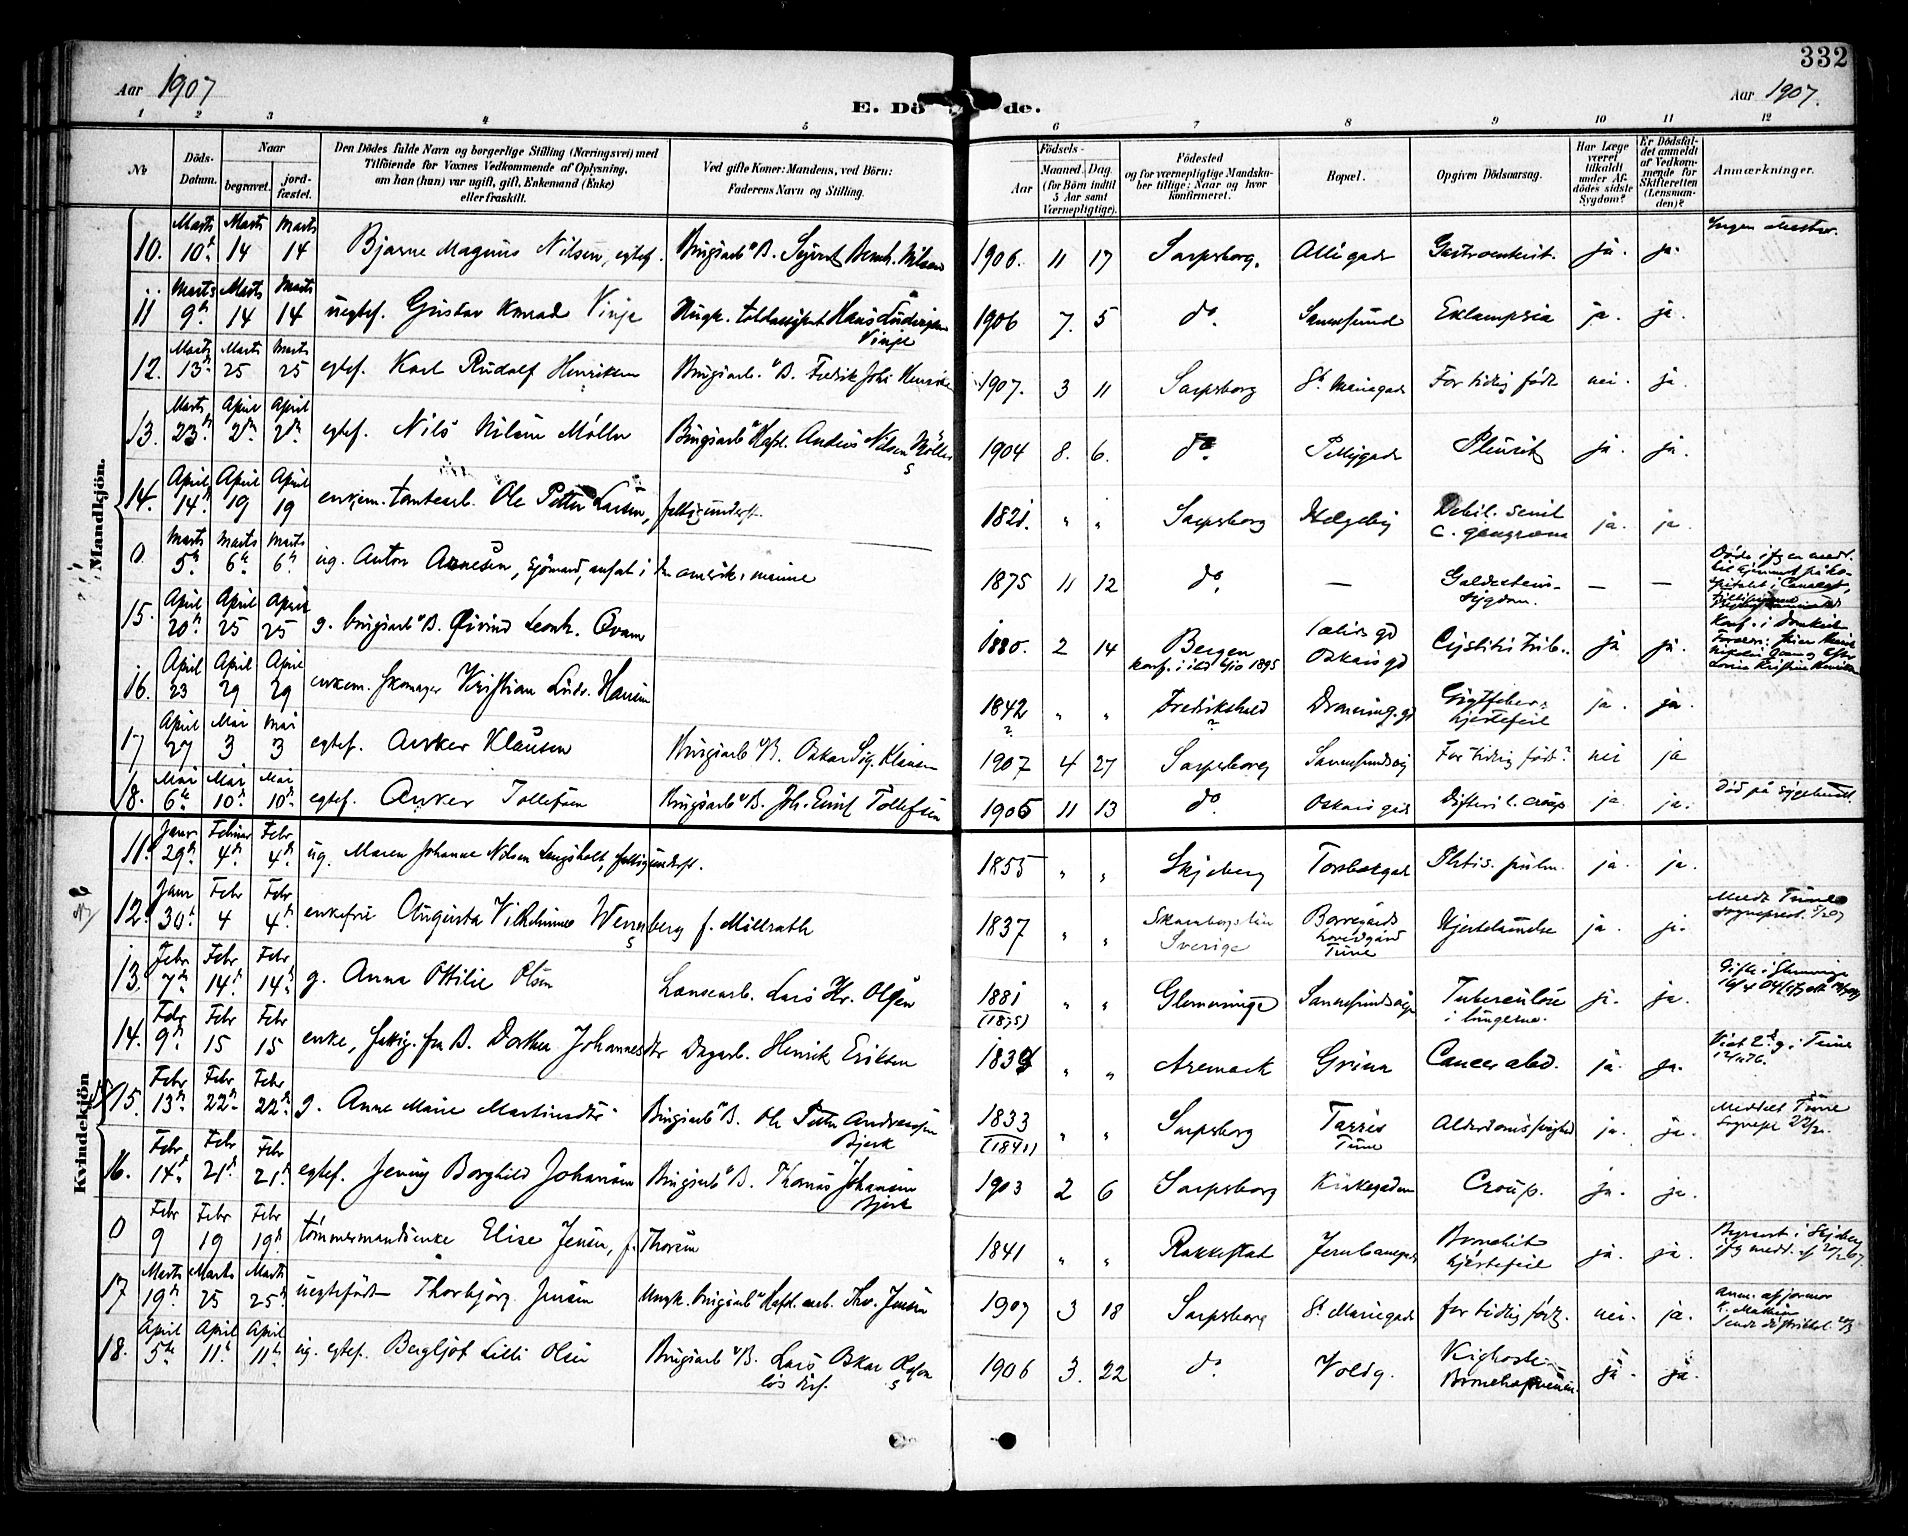 332
Aar 1907
E. Döde.
Aar 1907.
1 2 3 4 5 6 7 8 9 10 11 12
No
Döds-Datum.
Naar
begravet.
jordfæstet.
Den Dödes fulde Navn og borgerlige Stilling (Næringsvei) med
Tilföiende for Voxnes Vedkommende af Oplysning,
om han (hun) var ugift, gift, Enkemand (Enke)
eller fraskilt.
Ved gifte Koner: Mandens, ved Börn:
Faderens Navn og Stilling.
Födsels-
Aar
Maaned. Dag.
(for Börn indtil
5 Aar samt
Værnepligtige).
Födested
og for værnepligtige Mandskaber
tillige: Naar og hvor
konfirmeret.
Bopæl.
Opgiven Dödsaarsag.
Har Læge
været
tilkaldt
under Afdödes
sidste
Sygdom?
Er Dödsfaldet
anmeldt
af Vedkommende
for
Skifteretten
(Lensmanden)?
Anmærkninger.
Mandkjön.
10. Marts 10de Marts 14 Marts 14 Bjarne Magnus Nilsen, egtef. Brugsarb. B. Sigurd Bernh. Nilsen 1906. 11 17 Sarpsborg. Allégade Gastroenterit. ja. ja.
11 Marts 9de Marts 14 Marts 14 uegtef. Gustav Konrad Vinje Ungk. toldassistent Hans Ludvigsen Vinje 1906 7. 5 do. Sannesund Eklampsia ja. ja.
12. Marts 13de Marts 25 Marts 25 egtef. Karl Rudolf Henriksen Brugsarb. B. Fredrik Johs Henriksen 1907. 3 11 Sarpsborg St. Mariegade For tidlig födt nei. ja.
13. Marts 23de April 2den April 2den egtef. Nils Nilsen Möller Brugsarb. Hafsl. Anders Nilsen Möller 1904 8. 6. do. Pellygade Pleurit ja. ja.
14. April 14de April 19 April 19 enkem. tomtearb. Ole Petter Larsen, fattigunderst. 1821. " " Sarpsborg Helgeby Debil. senil c. gangræna ja. ja
0 Marts 5te Marts 6te Marts 6te ug. Anton Arnesen, sjömand, ansat i den amerik. marine 1875 11 12 do. — Galdestenssygdom. — —
15. April 20de April 25 April 25 g. brugsarb. B. Öivind Leonh. Qvam 1880. 2 14 Bergen Oskars gd Cystitis ja ja.
16. April 23 April 29 April 29 enkem. skomager Kristian Ludv. Hansen 1842 ? " " Fredrikshald ? Dronning. gd Gigtfeber. hjertefeil ja. ja.
17 April 27 Mai 3 Mai 3 egtef. Anker Klausen Brugsarb. B. Oskar Sig. Klausen 1907 4 27 Sarpsborg Sannesundsvei For tidlig födt nei ja
18. Mai 6te Mai 10de Mai 10de egtef. Anker Tollefsen Brugsarb. B. Joh. Emil Tollefsen 1905 11 13 do. Oskars gade Difteri c. croup ja ja. Död på sygehuset.
Kvindekjön
11. Januar 29de Februar 4de Febr 4de ug. Maren Johanne Nilsen Langsholt, fattigunderst. 1855 " " Skjeberg Torsbækgade Phtis. pulm. ja. ja.
12. Janr 30te Febr 4 Febr 4de enkefru Augusta Vilhelmine Wennerberg f. Möllrath 1837 " " Sverige Borregaards hovedgård Tune Hjertelamelse ja. ja. Medt Tune Sogneprest. 5/2 07
13. Febr 7de Febr 14de Febr 14de g. Anna Ottilie Olsen Lænsearb. Lars Kr. Olsen 1881 (1875) " " Glemminge Sannesundsveien Tuberculose i lungerne. ja. ja.
14. Febr 9de Febr 15 Febr 15 enke, fattig. fra B. Dorthea Johannesdtr Dagarb. Henrik Eriksen 1839 " " Aremark Grina Cancer abd. ja. ja.
15. Febr 13de Febr 22de Febr 22de g. Anne Marie Martinsdtr Brugsarb. B. Ole Petter Andreassen Bjerk 1833 (1841) " " Sarpsborg Tarris Tune Alderdomssvaghed ja. ja. Meddelt Tune Sognepr 22/2.
16. Febr 14de Febr 21de Febr 21de egtef. Jenny Borghild Johansen Brugsarb. B. Thomas Johansen Bjerk 1903 2 6 Sarpsborg Kirkegaden Croup. ja. ja.
0 Febr 9 Febr 19 Febr 19de tömmermandsenke Elise Jensen, f. Thoresen 1841 " " Rakkestad Jernbanegade Bronchit hjertefeil ja. ja.
17 Marts 19de Marts 25 Marts 25de uegtefödt Thorbjörg Jensen Ungk. brugsarb. Hafsl. arb. Thv. Jensen 1907 3 18 Sarpsborg St. Mariegade for tidlig födt. nei. ja.
18. April 5te April 11te April 11te ug. egtef. Bergljot Lilli Olsen Brugsarb. B. Lars Oskar Olsen lös Arb. 1906 3. 22 do Voldg. Kighoste Bronchopneumoni ja. ja.